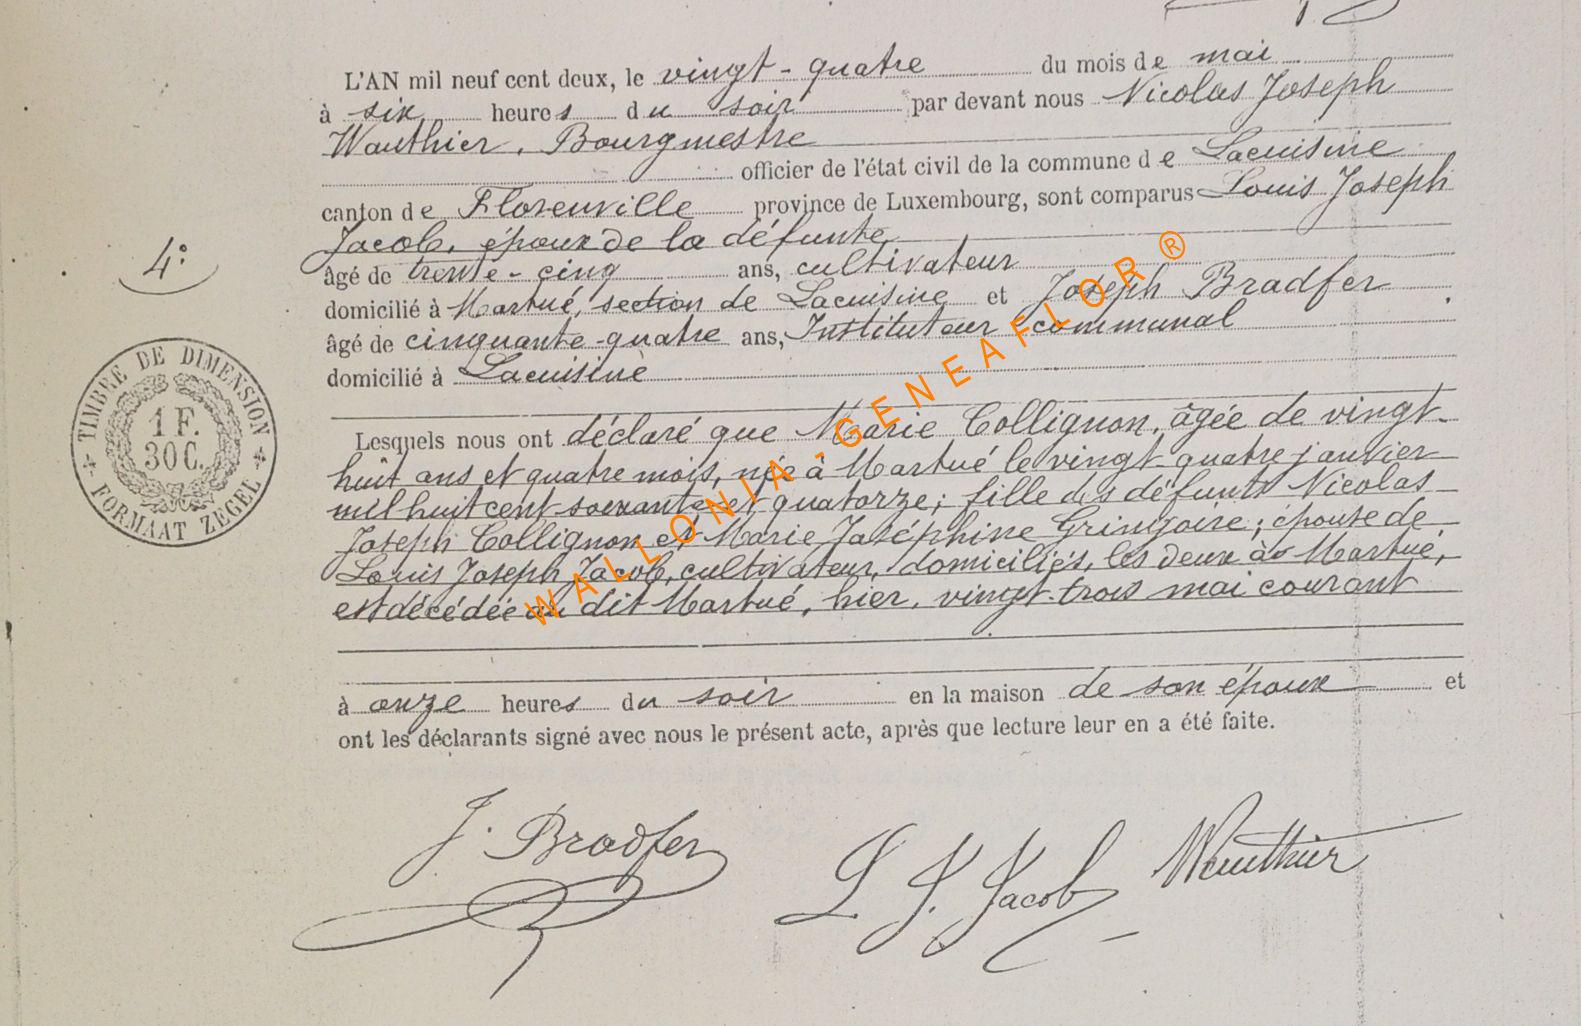 L'AN mil neuf cent deux, le vingt-quatre du mois de mai
à six heures du soir par devant nous Nicolas Joseph
Wauthier, Bourgmestre
officier de l'état civil de la commune de Lacuisine
canton de Florenville province de Luxembourg, sont comparus Louis Joseph
Jacob, époux de la défunte,
âgé de trente-cinq ans, cultivateur
domicilié à Martué, section de Lacuisine et Joseph Bradfer
âgé de cinquante-quatre ans, Instituteur communal
domicilié à Lacuisine
4°
TIMBRE DE DIMENSION
1 F.
30 C.
FORMAAT ZEGEL
Lesquels nous ont déclaré que Marie Collignon, âgée de vingt-
huit ans et quatre mois, née à Martué le vingt-quatre janvier
mil huit cent soixante et quatorze; fille des défunts Nicolas
Joseph Collignon et Marie Joséphine Gringoire; épouse de
Louis Joseph Jacob, cultivateur, domiciliés, les deux à Martué,
est décédée au dit Martué, hier, vingt-trois mai courant
à onze heures du soir en la maison de son époux et
ont les déclarants signé avec nous le présent acte, après que lecture leur en a été faite.
J. Bradfer
L. J. Jacob
Wauthier
WALLONIA-GENEAFLOR®